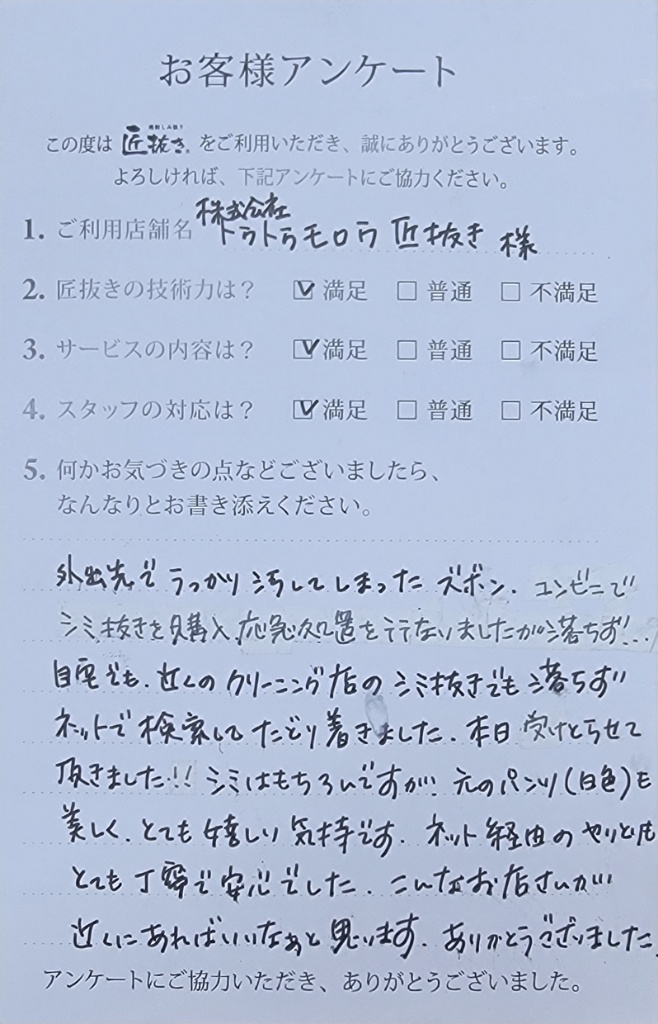 お客様アンケート
この度は 匠抜き をご利用いただき、誠にありがとうございます。
よろしければ、下記アンケートにご協力ください。
株式会社
1. ご利用店舗名 トラトラモロラ 匠抜き 様
2. 匠抜きの技術力は? ☑ 満足 □ 普通 □ 不満足
3. サービスの内容は? ☑ 満足 □ 普通 □ 不満足
4. スタッフの対応は? ☑ 満足 □ 普通 □ 不満足
5. 何かお気づきの点などございましたら、
なんなりとお書き添えください。
外出先で うっかり 汚してしまった ズボン. コンビニで
シミ抜きを購入 応急処置を行ないましたが落ちず...
自宅でも. 近くのクリーニング店の シミ抜きでも 落ちず
ネットで 検索して たどり着きました. 本日 受けとらせて
頂きました!! シミはもちろんですが 元のパンツ(白色)も
美しく. とても 嬉しい 気持です. ネット経由の やりとりも
とても 丁寧で 安心でした. こんなお店さんが
近くにあればいいなぁと 思います. ありがとうございました
アンケートにご協力いただき、ありがとうございました。